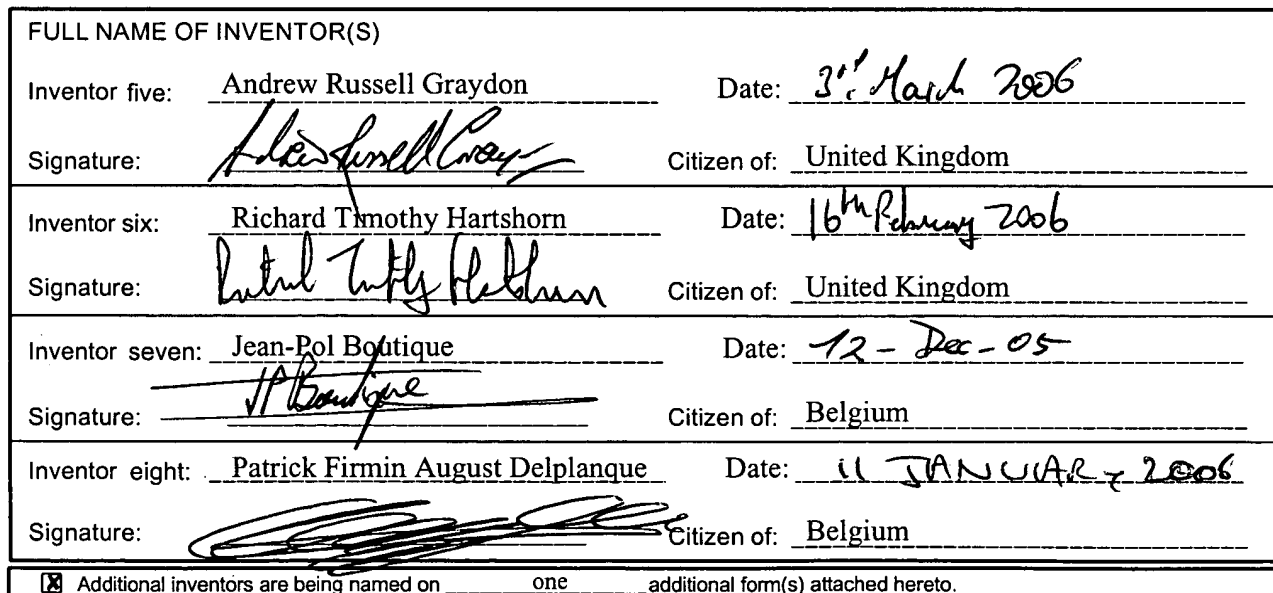 FULL NAME OF INVENTOR(S)
Inventor five: Andrew Russell Graydon Date: 3rd March 2006
Signature: Andrew Russell Graydon Citizen of: United Kingdom
Inventor six: Richard Timothy Hartshorn Date: 16th February 2006
Signature: Richard Timothy Hartshorn Citizen of: United Kingdom
Inventor seven: Jean-Pol Boutique Date: 12-Dec-05
Signature: JP Boutique Citizen of: Belgium
Inventor eight: Patrick Firmin August Delplanque Date: 11 JANUARY 2006
Signature: Citizen of: Belgium
☒ Additional inventors are being named on one additional form(s) attached hereto.